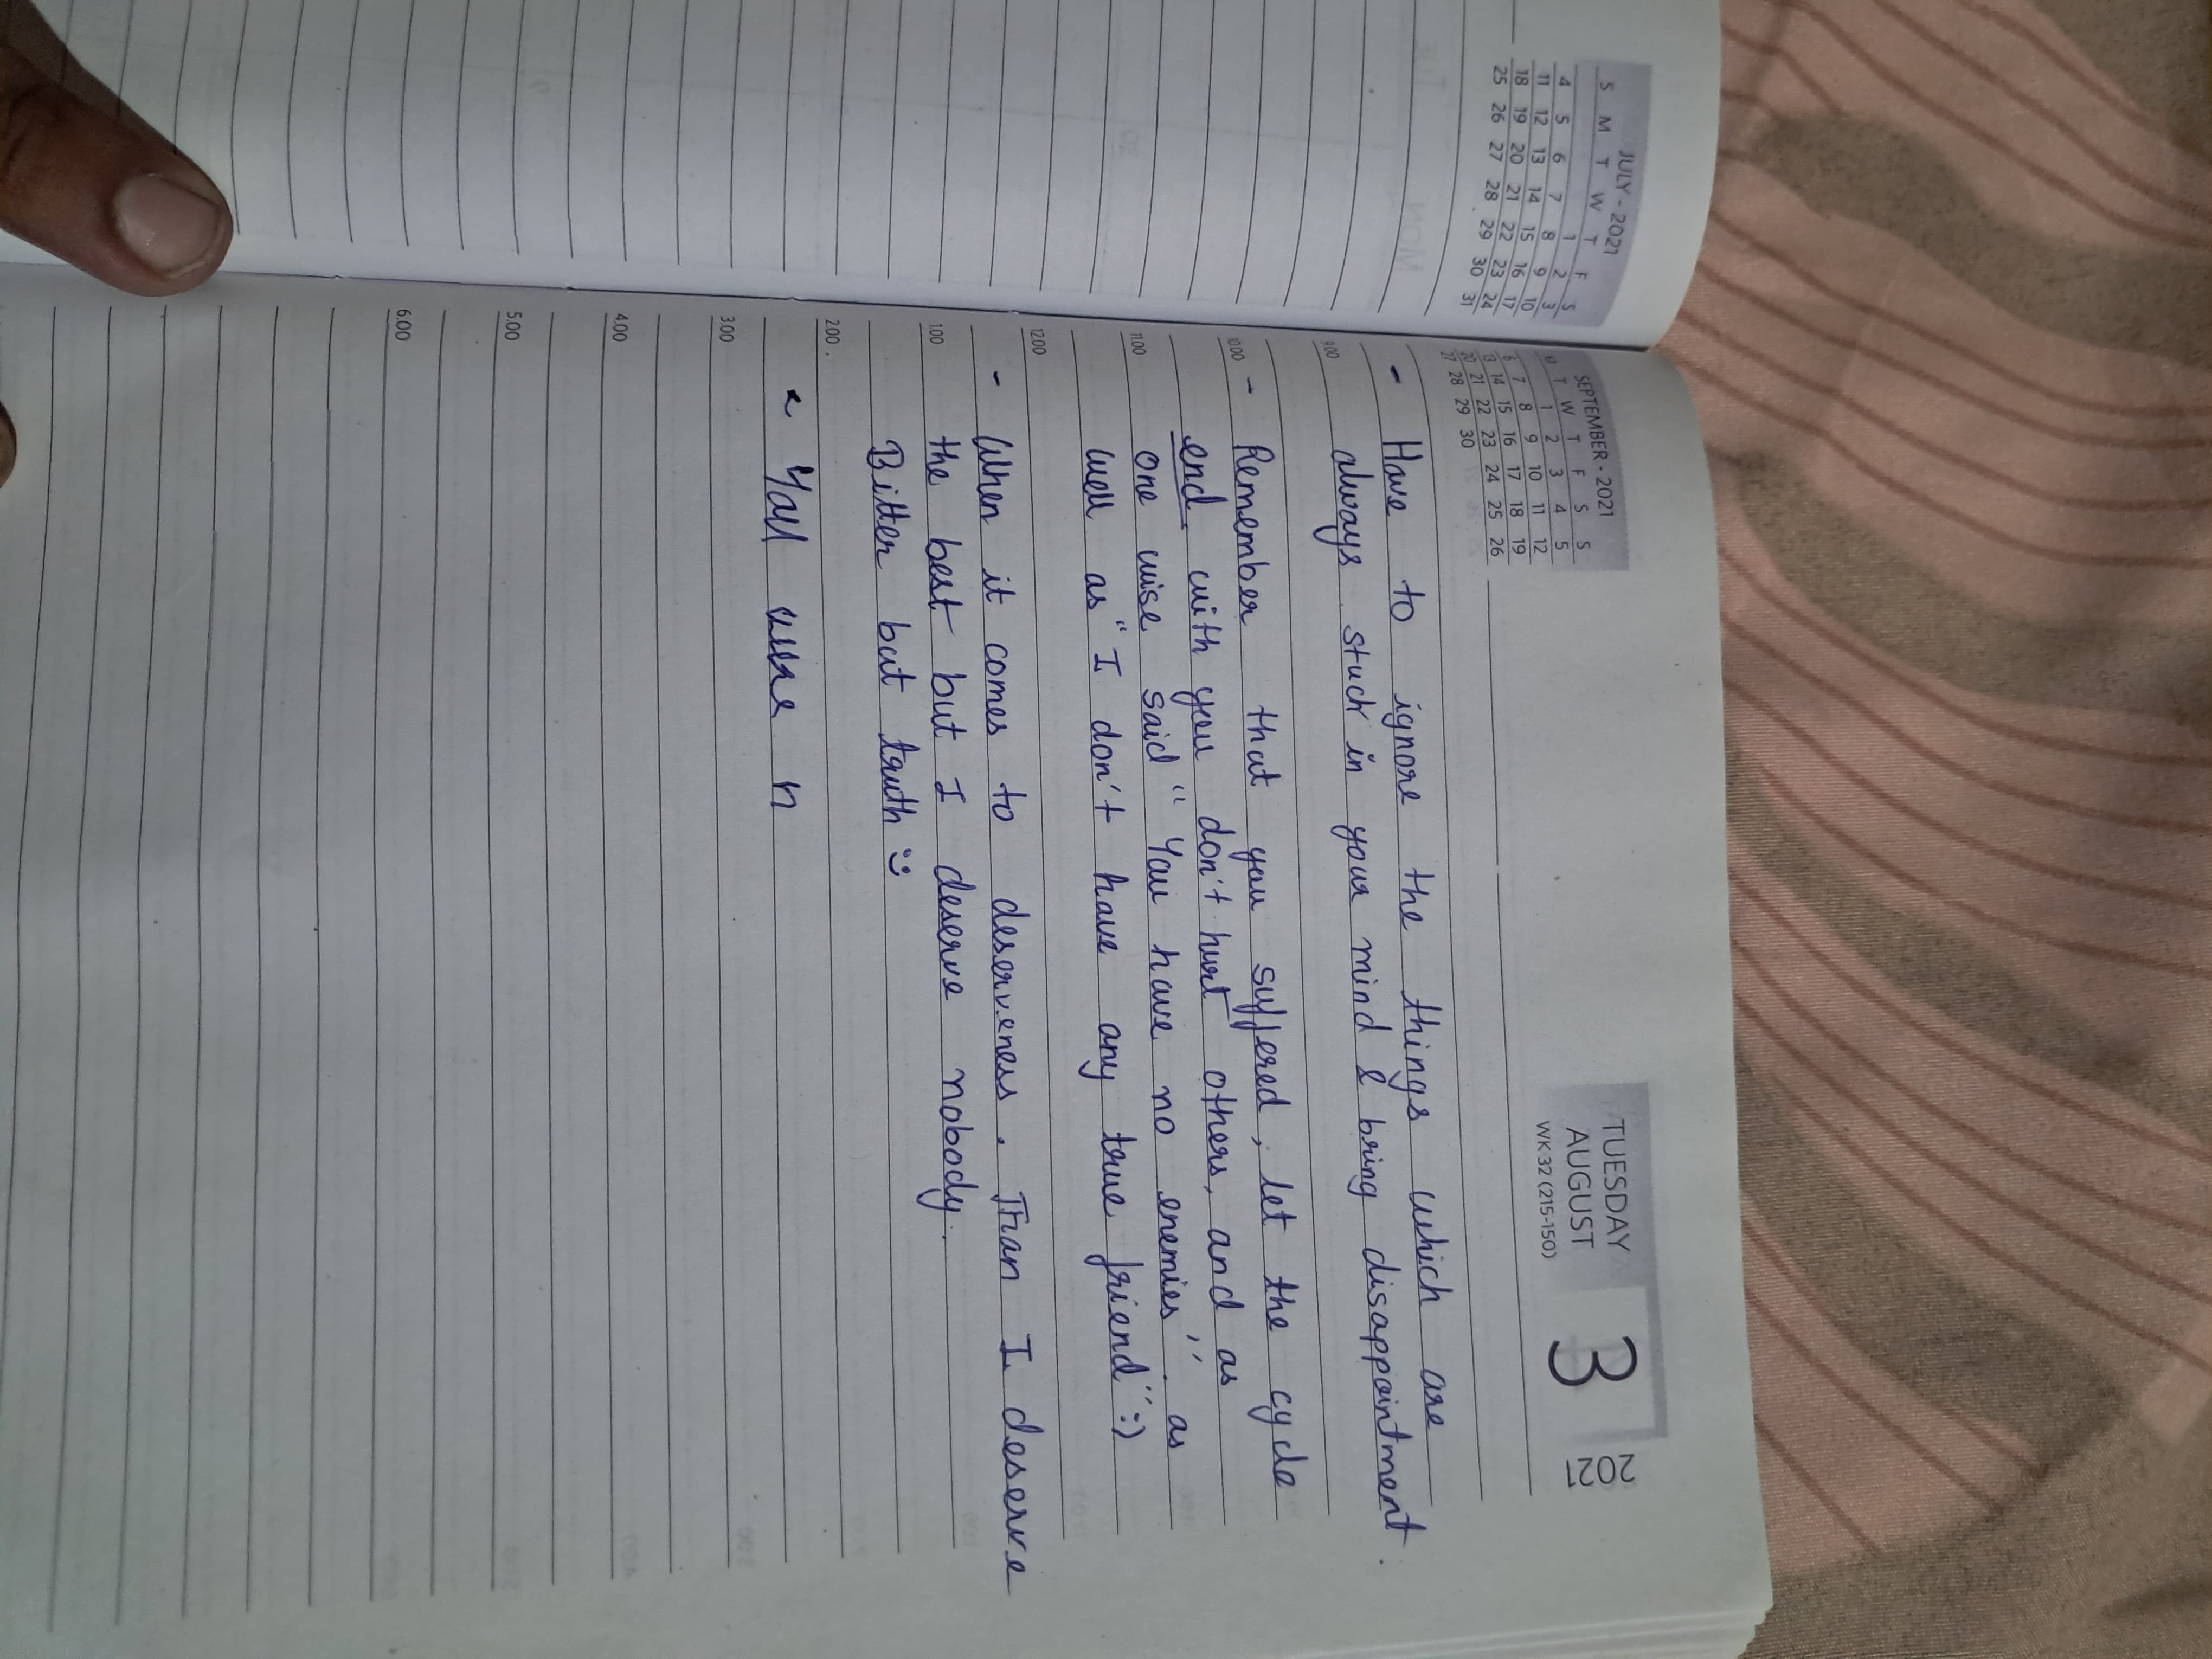 JULY - 2021
S M T W T F S
1 2 3
4 5 6 7 8 9 10
11 12 13 14 15 16 17
18 19 20 21 22 23 24
25 26 27 28 29 30 31
SEPTEMBER - 2021
M T W T F S S
1 2 3 4 5
6 7 8 9 10 11 12
13 14 15 16 17 18 19
20 21 22 23 24 25 26
27 28 29 30
TUESDAY
AUGUST
WK 32 (215-150)
3
2021
- Have to ignore the things which are
9.00
always stuck in your mind & bring disappointment.
10.00
- Remember that you suffered, let the cycle
end with you don't hurt others, and as
11.00
one wise said "You have no enemies" as
well as "I don't have any true friend" :)
12.00
- When it comes to deserveness. Than I deserve
1.00
the best but I deserve nobody.
Bitter but truth :)
2.00
You n
3.00
4.00
5.00
6.00